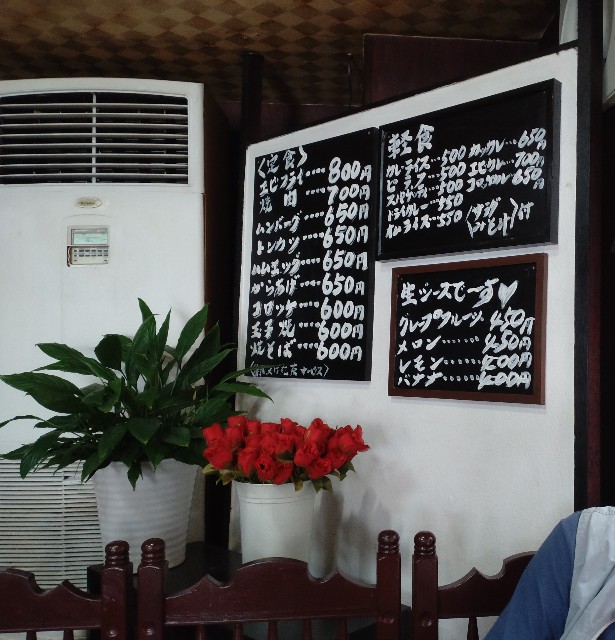 〈定食〉
エビフライ‥‥800円
焼肉‥‥700円
ハンバーグ‥‥650円
トンカツ‥‥650円
ハムエッグ‥‥650円
からあげ‥‥650円
コロッケ‥‥600円
玉子焼‥‥600円
焼そば‥‥600円
サービス〉
軽食
カレーライス‥‥500
ピラフ‥‥500
スパゲッティ‥‥500
ドライカレー‥‥550
オムライス‥‥550
カツカレー‥‥650
エビカレー‥‥700円
650円
〈サラダ みそ汁〉付
生ジュースで〜す♡
グレープフルーツ 450円
メロン‥‥‥450円
レモン‥‥‥400円
バナナ‥‥‥400円